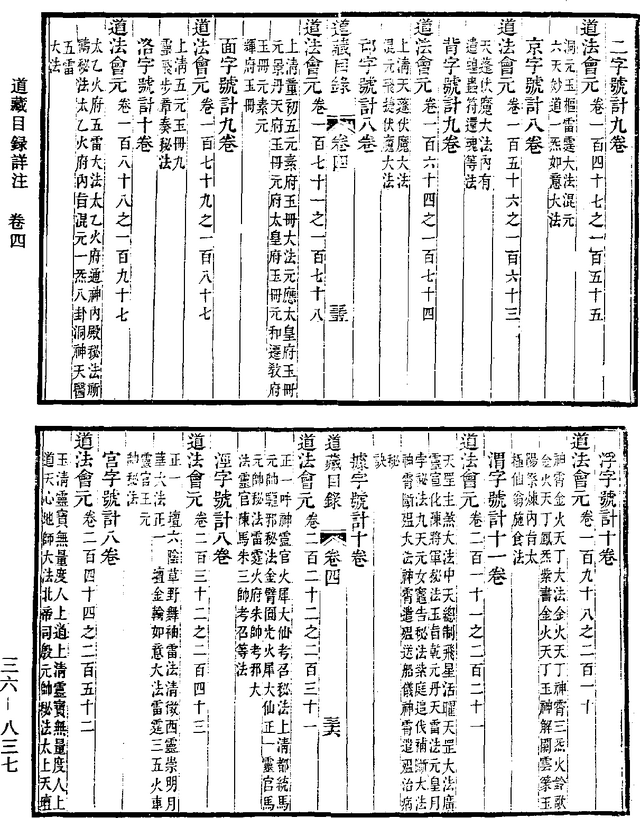 二字號計九卷
道法會元卷一百四十七之一百五十五
洞元玉樞雷霆大法混元
六天妙道一炁如意大法
京字號計八卷
道法會元卷一百五十六之一百六十三
天蓬伏魔大法內有
遣瘟蠱符還魂等法
背字號計九卷
道法會元卷一百六十四之一百七十四
上清天蓬伏魔大法
混元飛捉伏魔大法
邙字號計八卷
道藏目錄
卷四
道法會元卷一百七十一之一百七十八
上清童初五元素府玉冊大法元應太皇府玉冊
元景丹天府玉冊元府太皇府玉冊元和遷教府
玉冊元素元
輝府玉冊
面字號計九卷
道法會元卷一百七十九之一百八十七
上清五元玉冊九
靈飛步章奏秘法
洛字號計十卷
道法會元卷一百八十八之一百九十七
太乙火府五雷大法太乙火府通神內殿秘法斷
瘟秘法太乙火府內旨混元一炁八卦洞神天醫
五雷
大法
浮字號計十卷
道法會元卷一百九十八之二百一十
神霄金火天丁大法金火天丁神霄三炁火鈴歌
金火天丁鳳炁紫書金火天丁玉神解關雲篆玉
陽祭煉內旨太
極仙翁施食法
渭字號計十一卷
道法會元卷二百一十一之二百二十一
天罡主煞大法中天總制飛星活曜天罡大法廣
靈宣化陳將軍秘法玉旨乾元丹天雷法元皇月
字秘法九天元女竈告秘法紫庭追伐補斷大法
神霄斷瘟大法神霄遣瘟送船儀神霄遣瘟治病
秘
訣
據字號計十卷
道藏目錄
卷四
道法會元卷二百二十二之二百三十一
正一吽神靈官火犀大仙考召秘法上清都統馬
元帥驅邪秘法金臂圓光火犀大仙正一靈官馬
元帥秘法雷霆火府朱帥考邪大
法靈官陳馬朱三帥考召等法
涇字號計八卷
道法會元卷二百三十二之二百四十三
正一壇六陰草野舞袖雷法清微西靈崇明月
華大法正一壇金輪如意大法雷霆三五火車
靈官王元
帥秘法
宮字號計八卷
道法會元卷二百四十四之二百五十二
玉清靈寶無量度人上道上清靈寶無量度人上
道天心地師大法北帝司殷元帥秘法太上天壇
道藏目錄詳注　卷四
三六—八三七